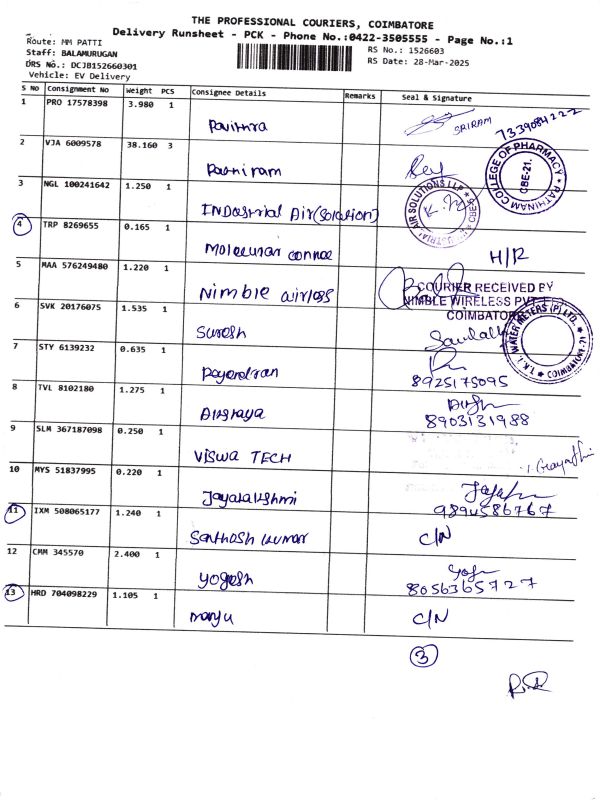 THE PROFESSIONAL COURIERS, COIMBATORE
Delivery Runsheet - PCK - Phone No.:0422-3505555 - Page No.:1
Route: MM PATTI
RS No.: 1526603
Staff: BALAMURUGAN
RS Date: 28-Mar-2025
DRS No.: DCJB152660301
Vehicle: EV Delivery
S No Consignment No Weight PCS Consignee Details Remarks Seal & Signature
1 PRO 17578398 3.980 1 Pavithra SRIRAM 7339084222
2 VJA 6009578 38.160 3
RATHINAM COLLEGE OF PHARMACY CBE-21.
3 NGL 100241642 1.250 1 INDustrial Air(Solution)
INDUSTRIAL AIR SOLUTIONS LLP
4 TRP 8269655 0.165 1 H/R
5 MAA 576249480 1.220 1 Nimble wireless
COURIER RECEIVED BY
NIMBLE WIRELESS PVT
COIMBATORE
6 SVK 20176075 1.535 1 Suresh
WATER METERS (P) LTD. COIMBATORE-21
7 STY 6139232 0.635 1 8925175095
8 TVL 8102180 1.275 1 8903131988
9 SLM 367187098 0.250 1 VISWA TECH Gayathri
10 MYS 51837995 0.220 1 Jayalakshmi 9894586767
11 IXM 508065177 1.240 1 Santhosh kumar C/N
12 CMM 345570 2.400 1 yogesh 8056365727
13 HRD 704098229 1.105 1 manju C/N
3